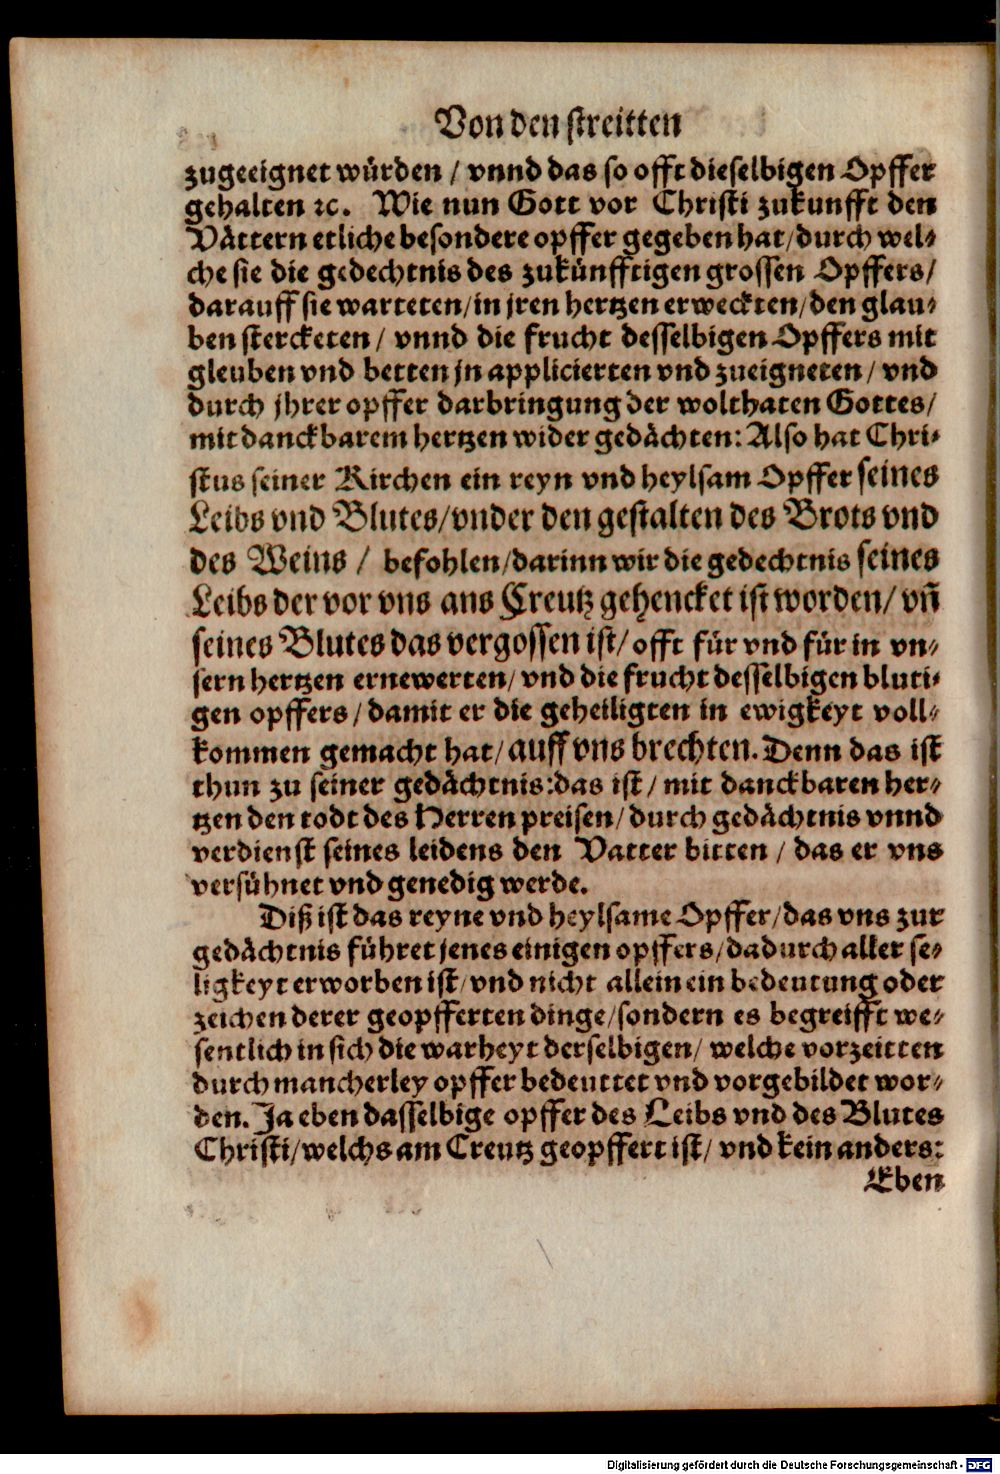 Von den streitten
zugeeignet würden / vnnd das so offt dieselbigen Opffer
gehalten ꝛc. Wie nun Gott vor Christi zukunfft den
Vättern etliche besondere opffer gegeben hat / durch wel-
che sie die gedechtnis des zukünfftigen grossen Opffers /
darauff sie warteten / in jren hertzen erweckten / den glau-
ben sterckten / vnnd die frucht desselbigen Opffers mit
gleuben vnd betten jn applicierten vnd zueigneten / vnd
durch jhrer opffer darbringung der wolthaten Gottes /
mit danckbarem hertzen wider gedächten: Also hat Chri-
stus seiner Kirchen ein reyn vnd heylsam Opffer seines
Leibs vnd Blutes / vnder den gestalten des Brots vnd
des Weins / befohlen / darinn wir die gedechtnis seines
Leibs der vor vns ans Creutz gehencket ist worden / vñ
seines Blutes das vergossen ist / offt für vnd für in vn-
sern hertzen ernewerten / vnd die frucht desselbigen bluti-
gen opffers / damit er die geheiligten in ewigkeyt voll-
kommen gemacht hat / auff vns brechten. Denn das ist
thun zu seiner gedächtnis: das ist / mit danckbaren her-
tzen den todt des Herren preisen / durch gedächtnis vnnd
verdienst seines leidens den Vatter bitten / das er vns
versühnet vnd genedig werde.
Diß ist das reyne vnd heylsame Opffer / das vns zur
gedächtnis führet jenes einigen opffers / dadurch aller se-
ligkeyt erworben ist / vnd nicht allein ein bedeutung oder
zeichen derer geopfferten dinge / sondern es begreifft we-
sentlich in sich die warheyt derselbigen / welche vorzeitten
durch mancherley opffer bedeuttet vnd vorgebildet wor-
den. Ja eben dasselbige opffer des Leibs vnd des Blutes
Christi / welchs am Creutz geopffert ist / vnd kein anders:
Eben
Digitalisierung gefördert durch die Deutsche Forschungsgemeinschaft - DFG